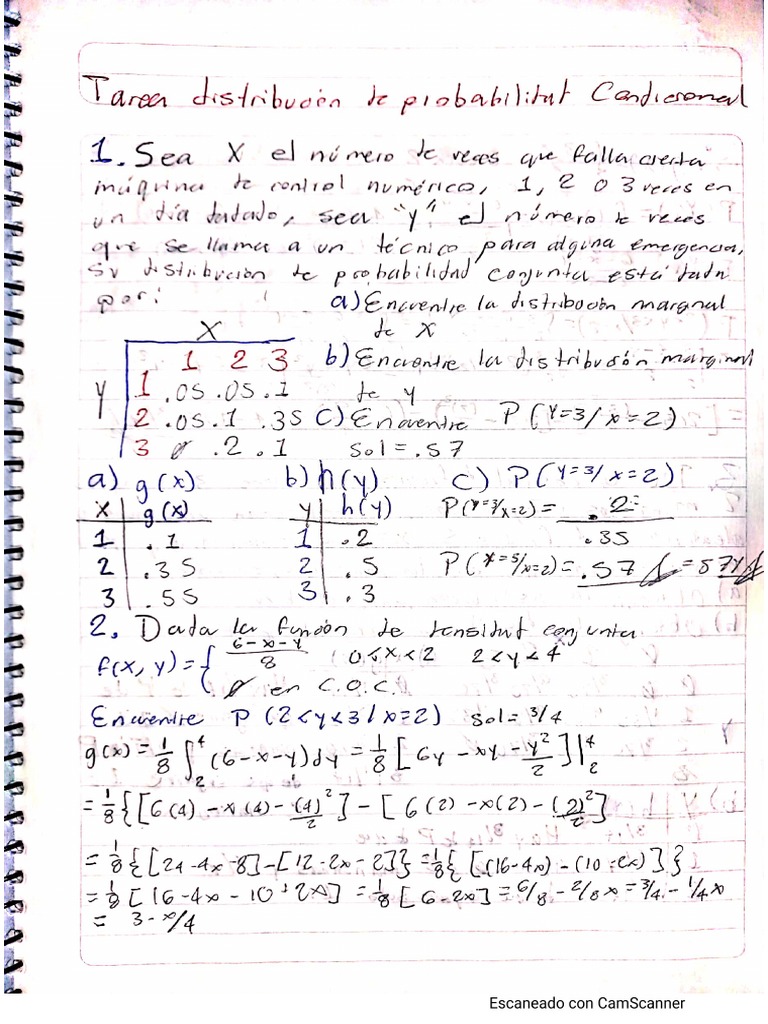 Tarea distribución de probabilidad Condicional
1. Sea X el número de veces que falla cierta
máquina de control numérico, 1, 2 o 3 veces en
un día dado, sea "y" el número de veces
que se llama a un técnico para alguna emergencia,
su distribución de probabilidad conjunta está dada
por:
a) Encuentre la distribución marginal
de X
X
1 2 3
b) Encuentre la distribusión marginal
de y
Y
1 .05 .05 .1
2 .05 .1 .35
3 0 .2 .1
c) Encuentre P(Y=3/x=2)
sol = .57
a) g(x) b) h(y) c) P(Y=3/x=2)
x g(x) y h(y) P(Y=3/x=2) = .2
1 .1 1 .2 .35
2 .35 2 .5 = .57 = 57%
3 .55 3 .3
2. Dada la función de densidad conjunta
f(x, y) = { 6-x-y/8 0<x<2 2<y<4
0 en C.O.C.
Encuentre P(2<y<3/x=2) sol = 3/4
g(x) = 1/8 ∫₂⁴ (6-x-y)dy = 1/8 [6y - xy - y²/2]|₂⁴
= 1/8 {[6(4) - x(4) - (4)²/2] - [6(2) - x(2) - (2)²/2]}
= 1/8 {[24-4x-8]-[12-2x-2]} = 1/8 {[(16-4x) - (10-2x)]}
= 1/8 [16-4x-10+2x] = 1/8 [6-2x] = 6/8 - 2/8x = 3/4 - 1/4x
= 3-x/4
Escaneado con CamScanner